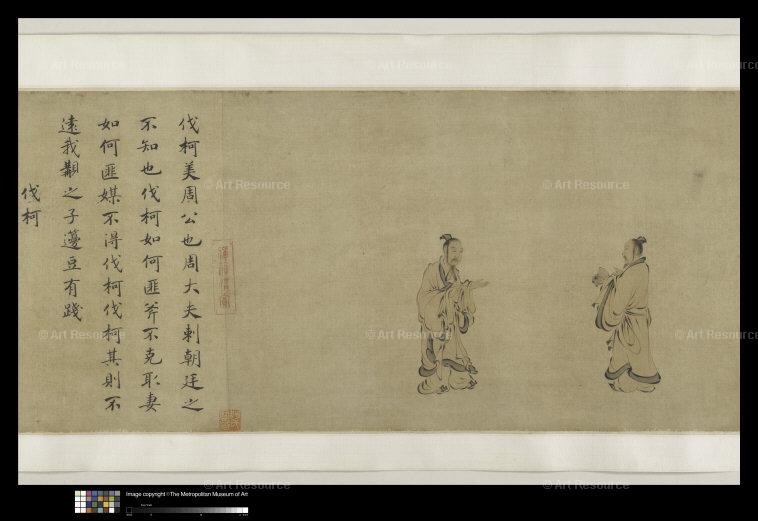 伐柯美周公也周大夫刺朝廷之
不知也伐柯如何匪斧不克取妻
如何匪媒不得伐柯伐柯其則不
遠我覯之子籩豆有踐
伐柯
© Art Resource
© Art Resource
© Art Resource
© Art Resource
© Art Resource
© Art Resource
© Art Resource
© Art Resource
© Art Resource
© Art Resource
Image copyright © The Metropolitan Museum of Art